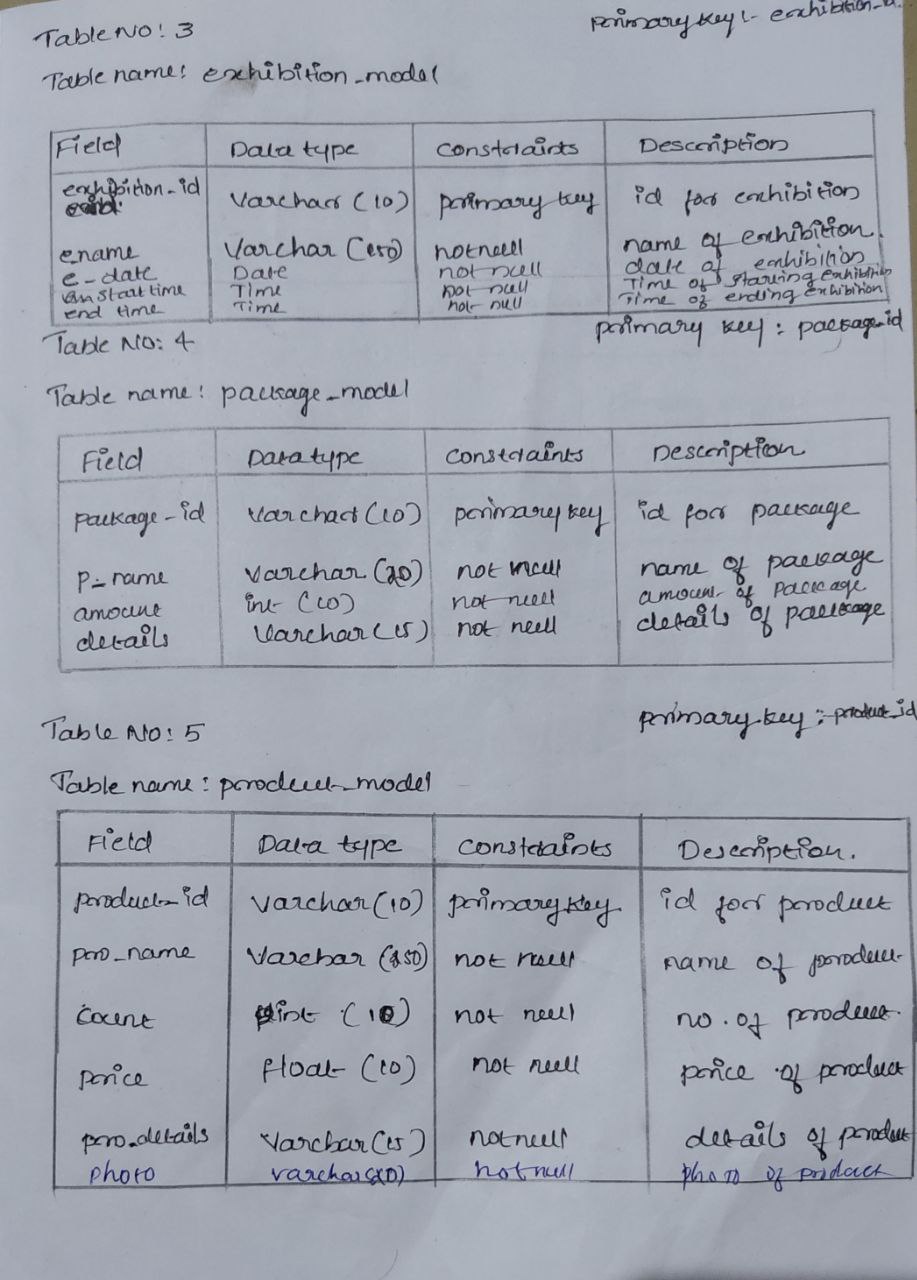 primary key :- exhibition_id
Table No: 3
Table name: exhibition_model
Field Data type Constraints Description
exhibition_id Varchar (10) primary key id for exhibition
ename Varchar (50) not null name of exhibition.
e_date Date not null date of exhibition
start time Time not null Time of starting exhibition
end time Time not null Time of ending exhibition
primary key : package_id
Table No: 4
Table name: package_model
Field Data type Constraints Description
package_id Varchar (10) primary key id for package
P_name Varchar (20) not null name of package
amount int (10) not null amount of package
details Varchar (15) not null details of package
Table No: 5 primary key : product_id
Table name: product_model
Field Data type Constraints Description.
product_id Varchar (10) primary key id for product
pro_name Varchar ( ) not null name of product
Count int (10) not null no. of product.
price float (10) not null price of product
pro_details Varchar (15) not null details of product
photo varchar not null photo of product